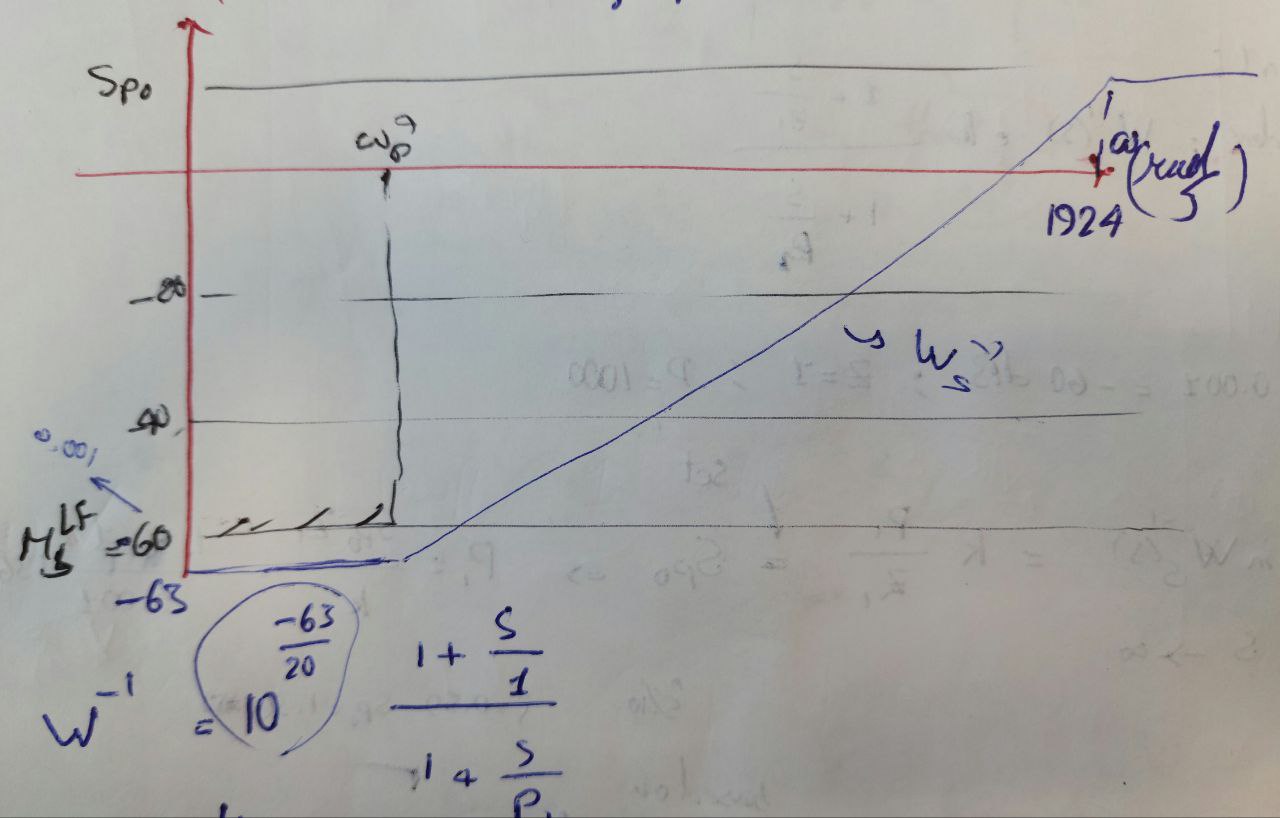 Spo
ωp
-20
ω (rad/s)
1924
Ws⁻¹
-40
0.001
Ms^LF = -60
-63
W⁻¹ = 10^(-63/20) (1 + s/1)/(1 + s/P₁)